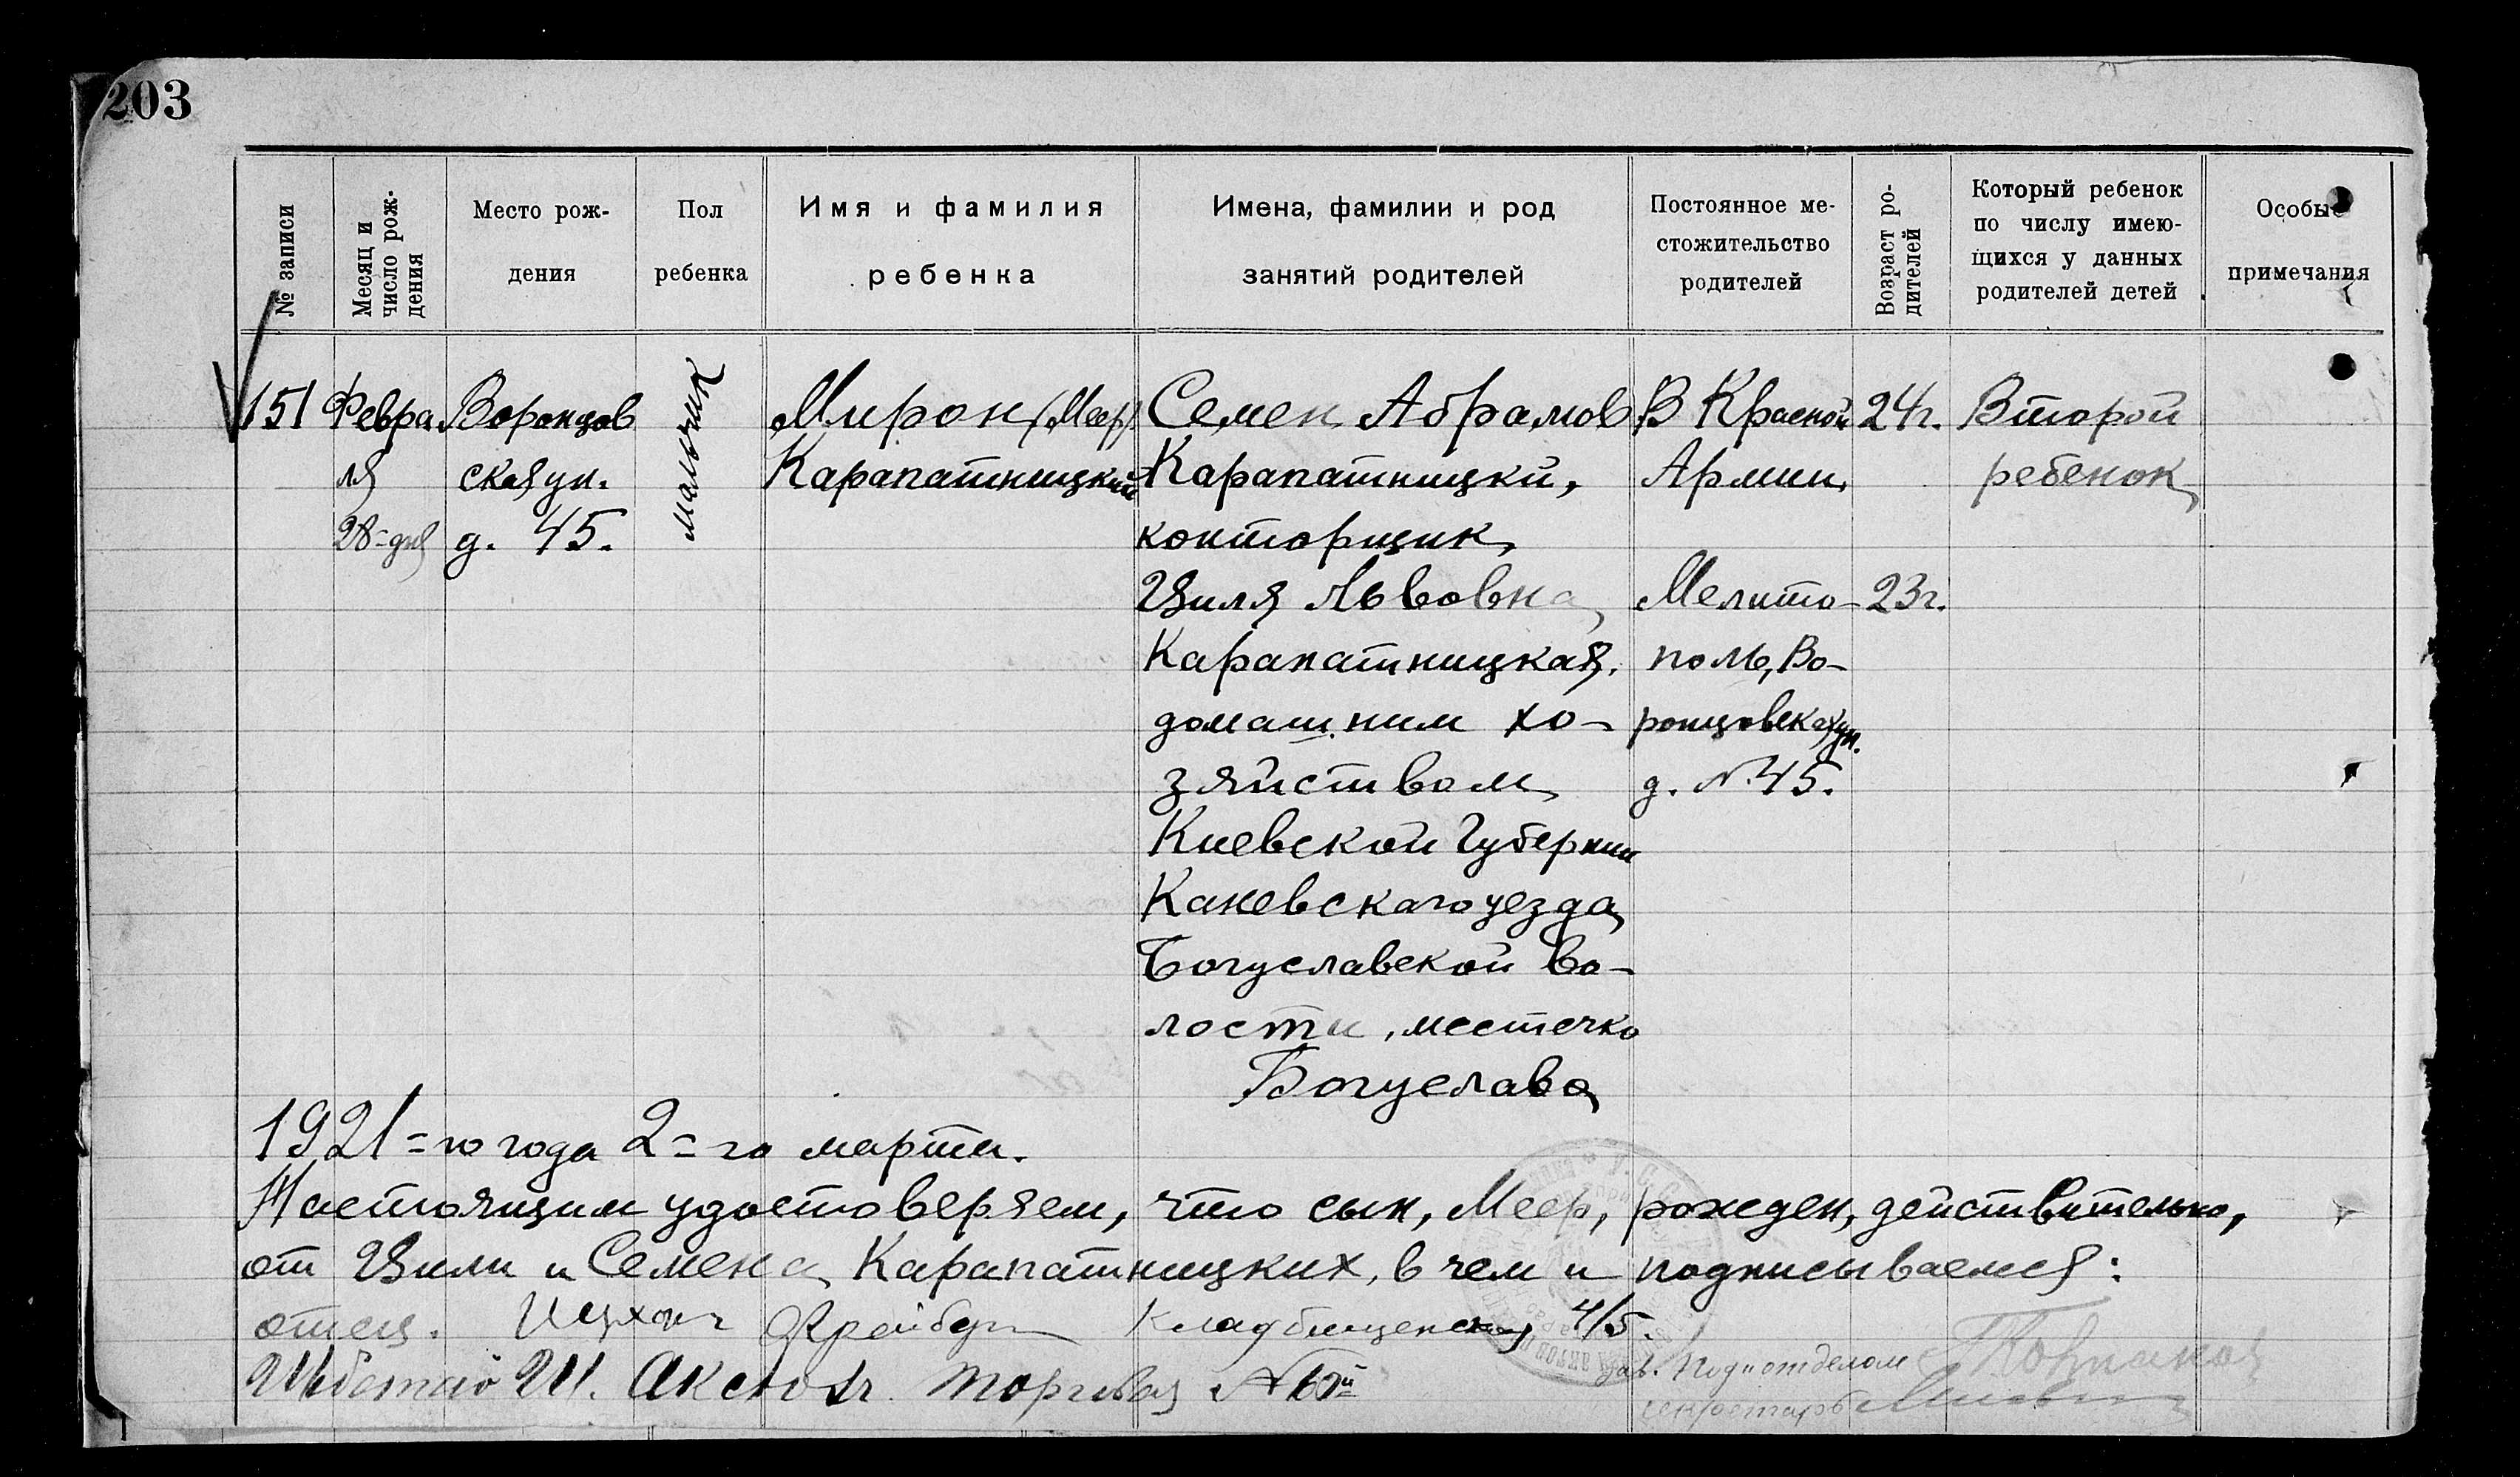 203
№ записи
Месяц и
число рож-
дения
Место рож-
дения
Пол
ребенка
Имя и фамилия
ребенка
Имена, фамилии и род
занятий родителей
Постоянное ме-
стожительство
родителей
Возраст ро-
дителей
Который ребенок
по числу имею-
щихся у данных
родителей детей
Особые
примечания
151
Февра
ля
28=дня
Воронцов
ская ул.
д. 45.
мальчик
Мирон (Меер)
Карапатницкий
Семен Абрамов
Карапатницкй,
конторщик,
Циля Львовна,
Карапатницкая,
домашним хо-
зяйством,
Киевской Губернии
Каневскаго уезда,
Богуславской во-
лости, местечко
Богуслава
В Красной
Армии,
Мелито-
поль, Во-
ронцовская ул.
д. №45.
24г.
23г.
Второй
ребенок
1921=го года 2=го марта.
Настоящим удостоверяем, что сын, Меер, рожден, действительно,
от Цили и Семена Карапатницких, в чем и подписываемся:
отец. Ицхок Кладбищенская 4/5.
Ш. Торговая №
зав. Подотделом
секретарь